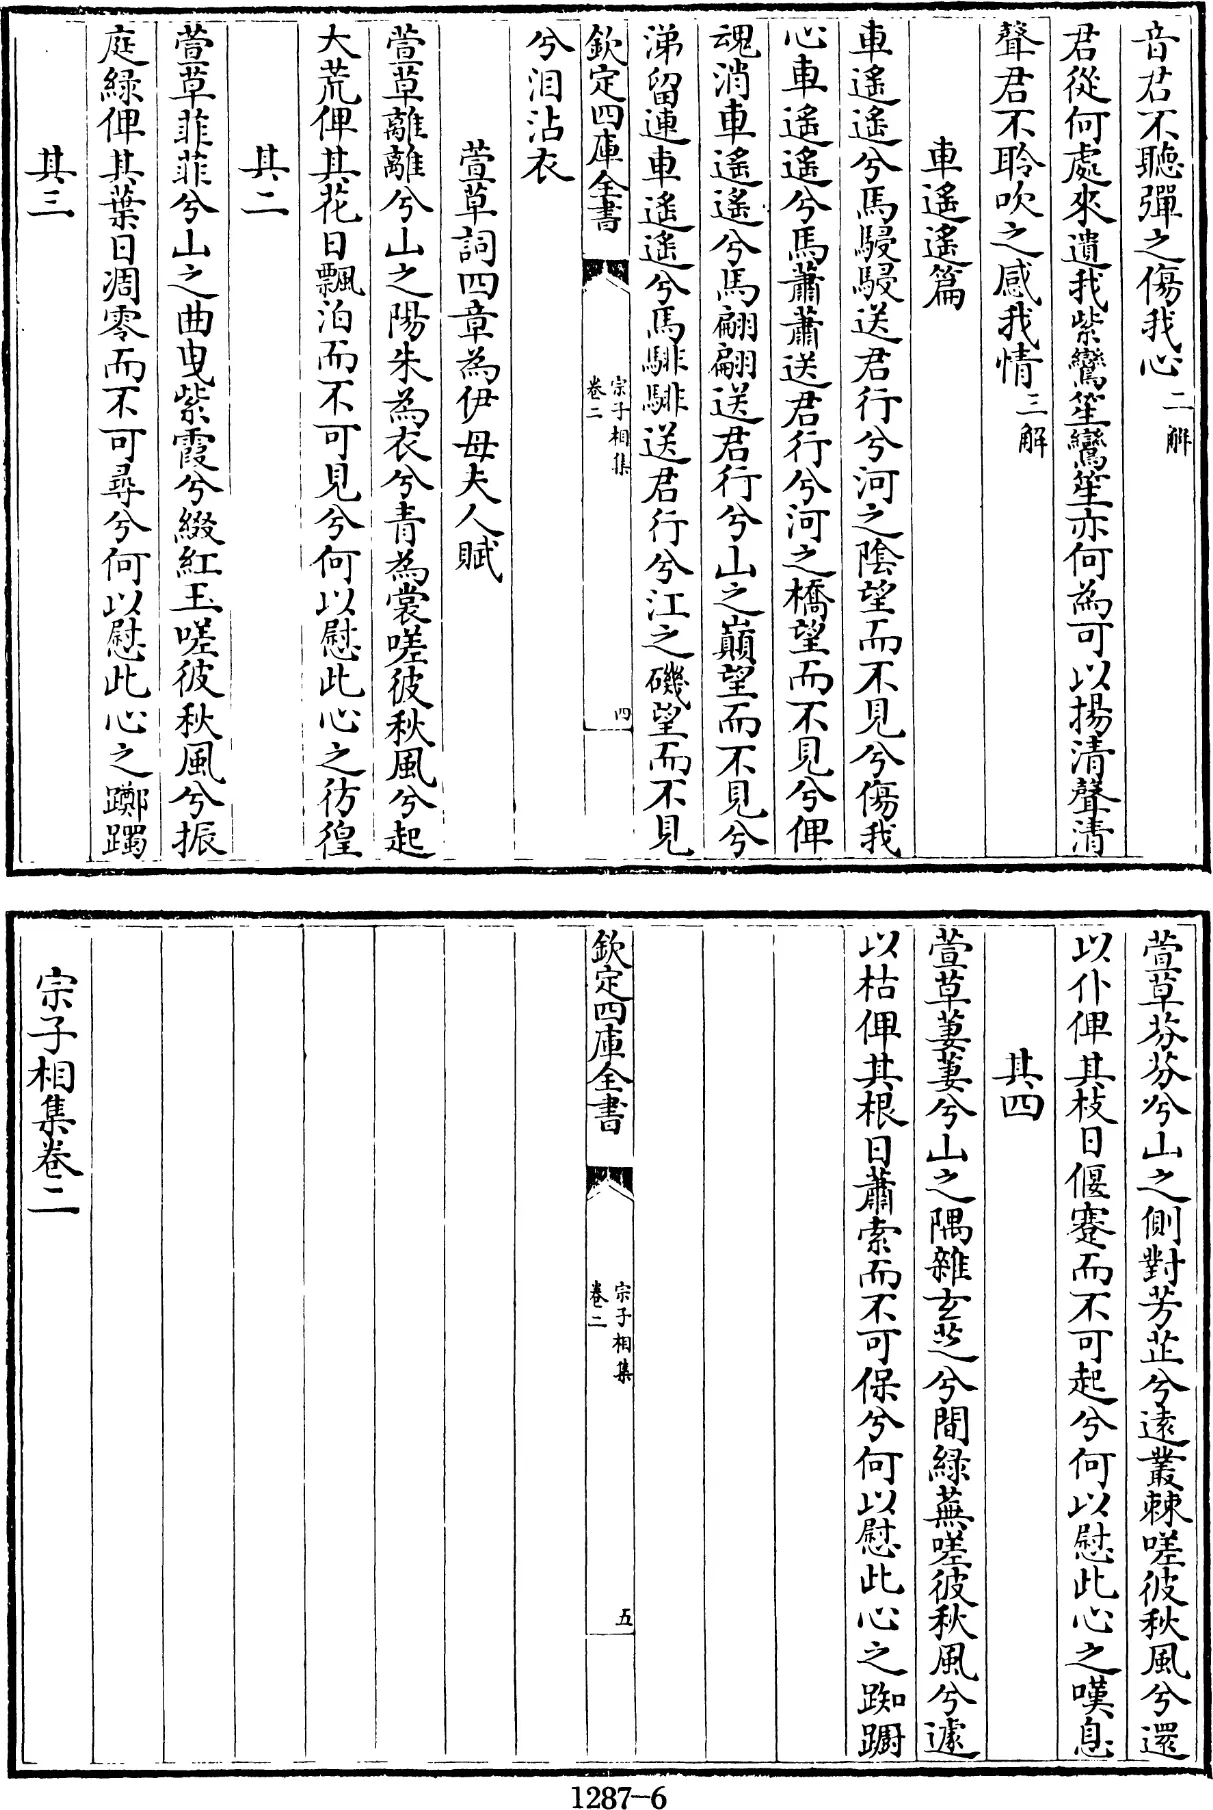 音君不聽彈之傷我心二解
君從何處來遺我紫鸞笙鸞笙亦何為可以揚清聲清
聲君不聆吹之感我情三解
車遙遙篇
車遙遙兮馬駸駸送君行兮河之陰望而不見兮傷我
心車遙遙兮馬蕭蕭送君行兮河之橋望而不見兮俾
魂消車遙遙兮馬翩翩送君行兮山之巔望而不見兮
涕留連車遙遙兮馬騑騑送君行兮江之磯望而不見
欽定四庫全書
宗子相集
卷二
四
兮泪沾衣
萱草詞四章為伊母夫人賦
萱草離離兮山之陽朱為衣兮青為裳嗟彼秋風兮起
大荒俾其花日飄泊而不可見兮何以慰此心之彷徨
其二
萱草菲菲兮山之曲曳紫霞兮綴紅玉嗟彼秋風兮振
庭緑俾其葉日凋零而不可尋兮何以慰此心之躑躅
其三
萱草芬芬兮山之側對芳芷兮遠叢棘嗟彼秋風兮還
以仆俾其枝日偃蹇而不可起兮何以慰此心之嘆息
其四
萱草萋萋兮山之隅雜玄芝兮間緑蕪嗟彼秋風兮遽
以枯俾其根日蕭索而不可保兮何以慰此心之踟蹰
欽定四庫全書
宗子相集
卷二
五
宗子相集卷二
1287-6